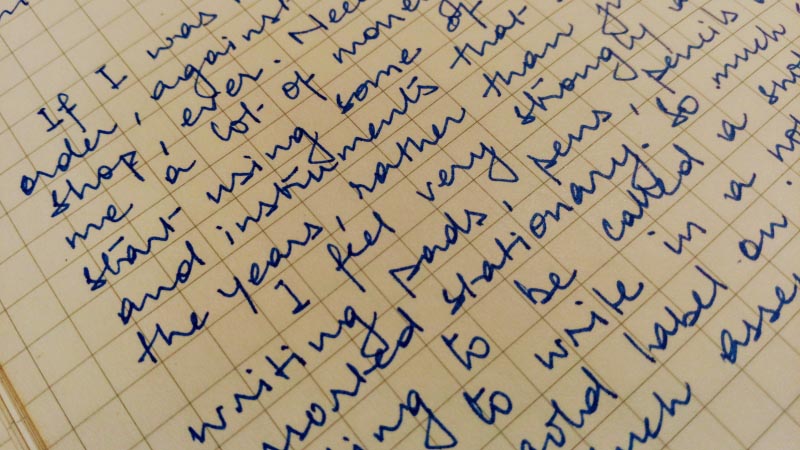 If I was
order, against
shop, ever. Need
me a lot of money
start using some of
and instruments that
the years, rather than
I feel very strongly
writing pads, pens, pencils
sorted stationary. So much
ing to be called a
ing to write in a
gold label on.
uch asse